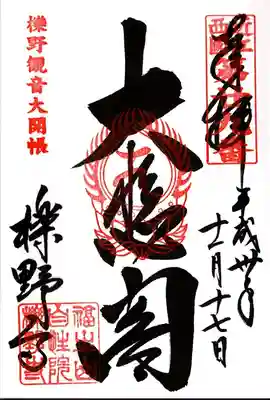 奉拝
平成卅年
十一月十七日
大悲閣
櫟野観音大開帳
櫟野寺
福生山
自性院
櫟野寺